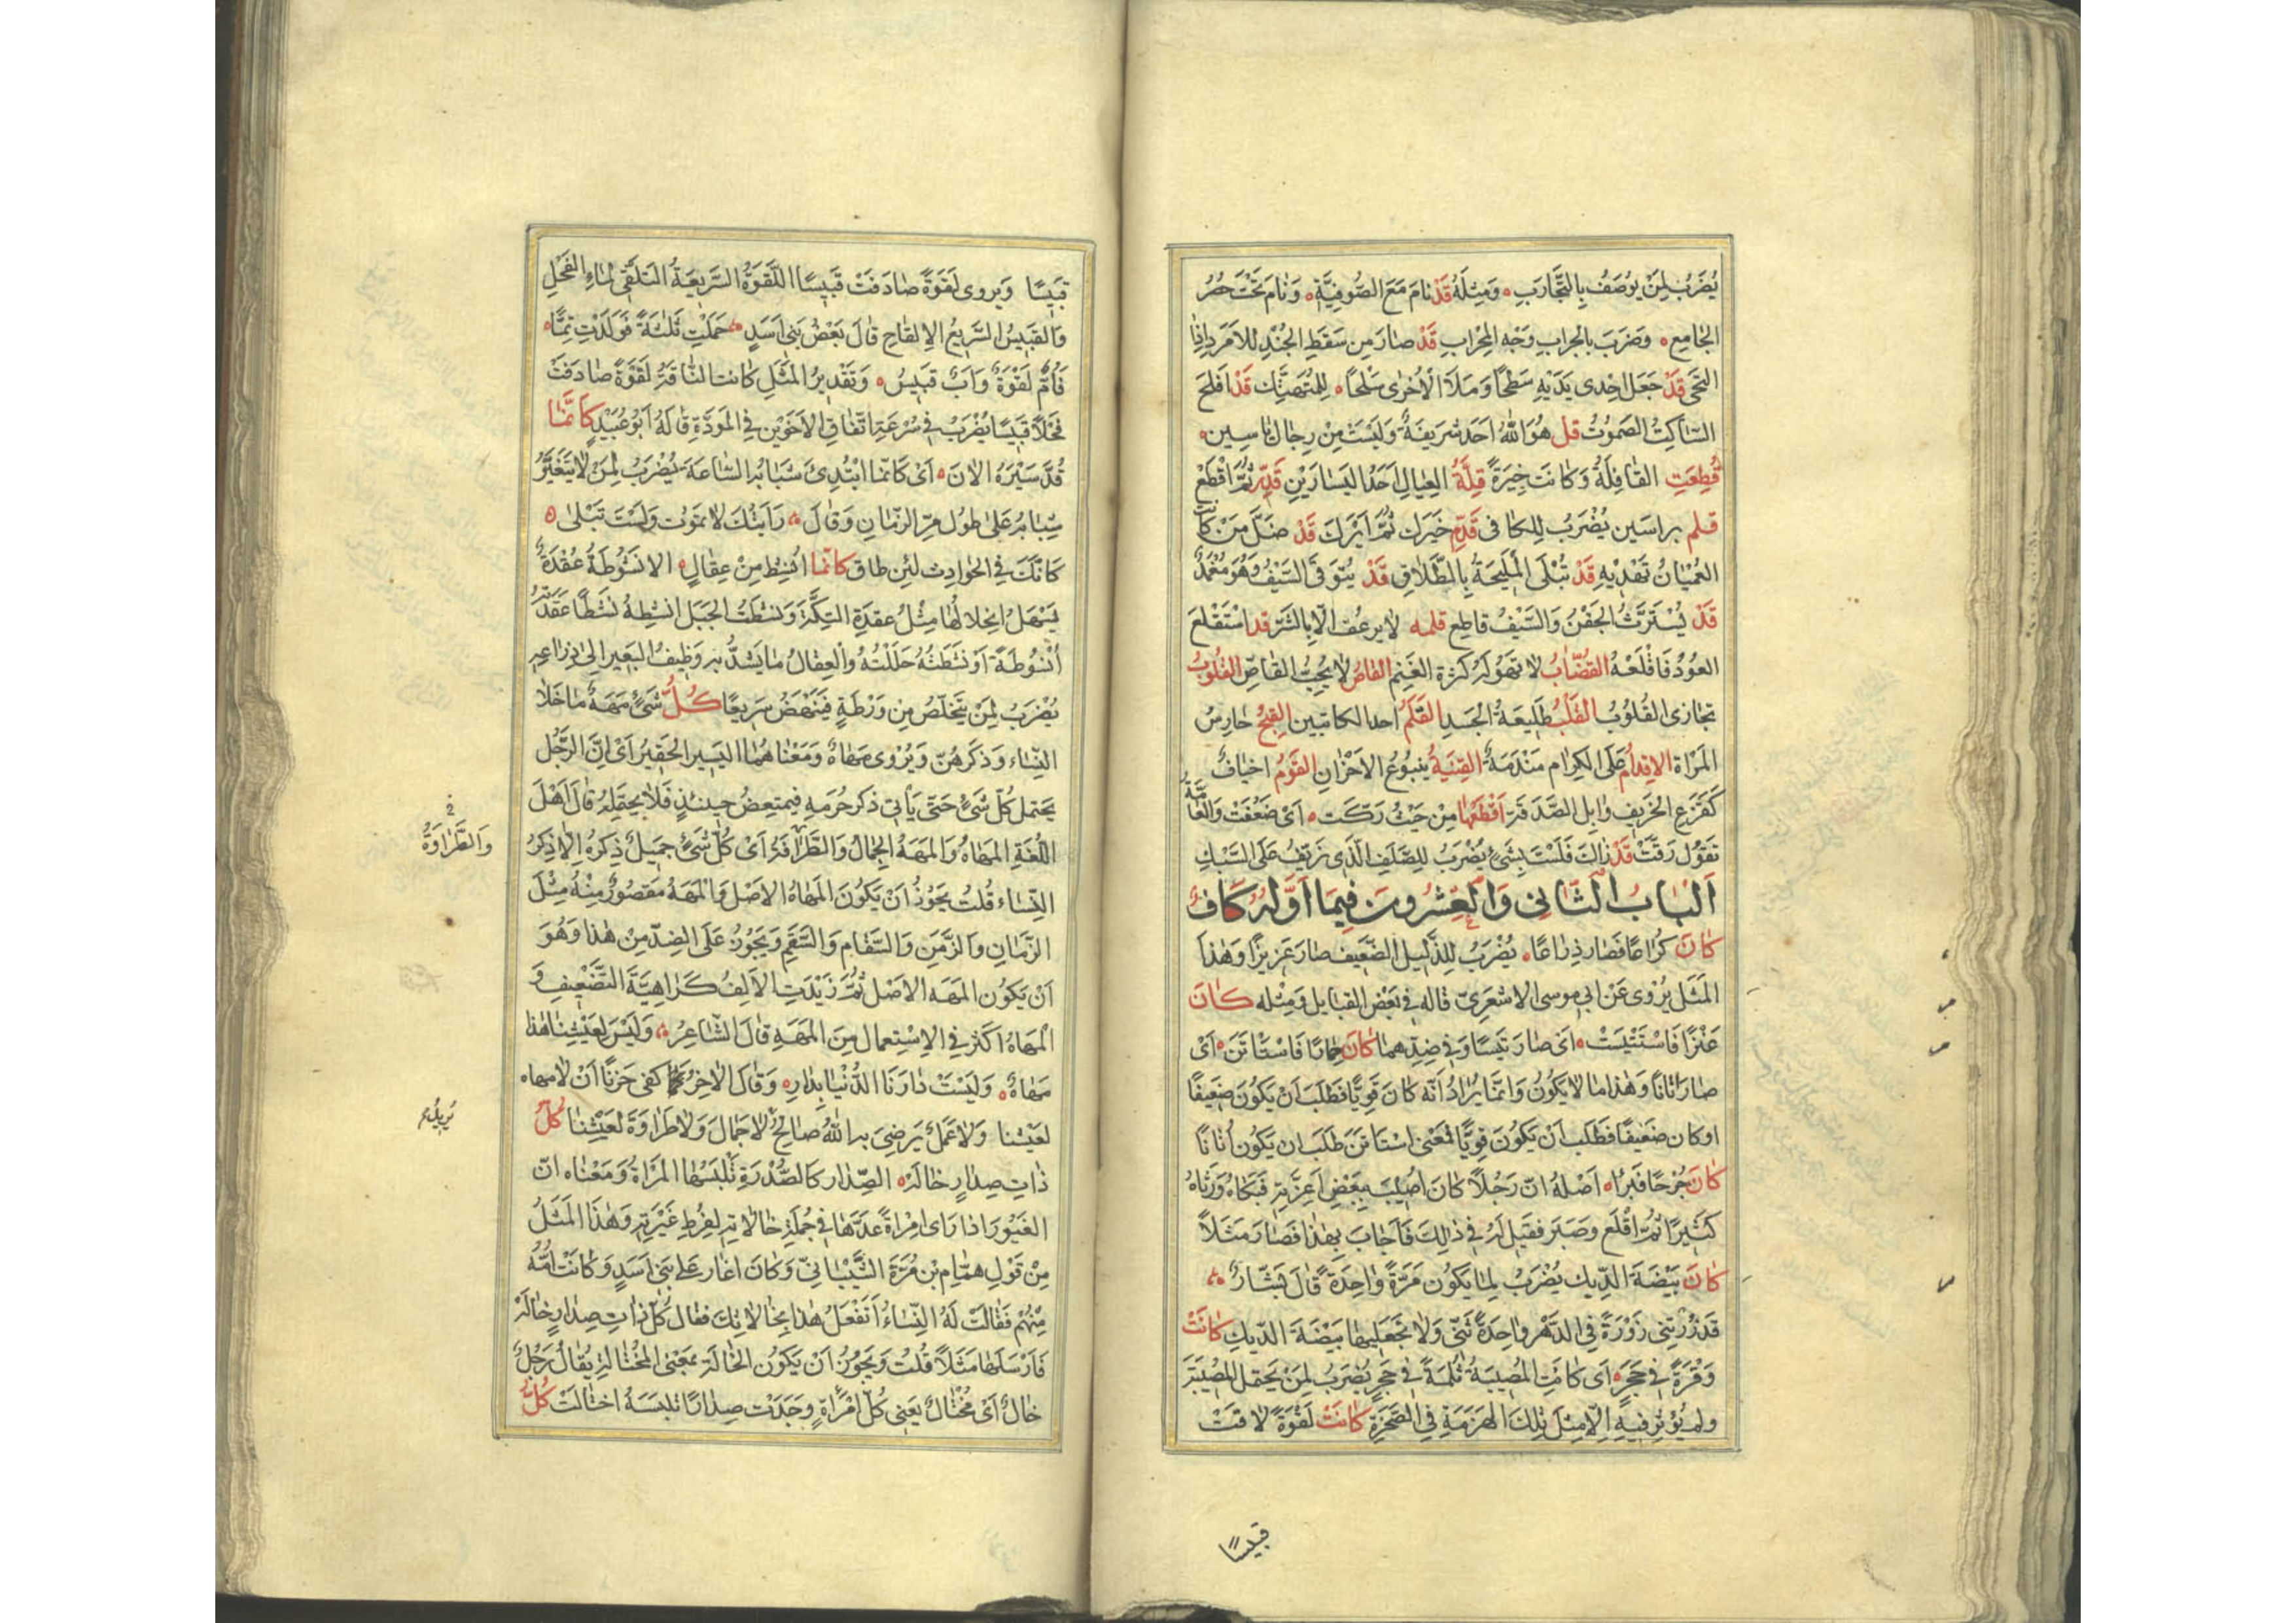 يُضْرَبُ لِمَنْ يُوصَفُ بِالتَّجَارِبِ وَمِثْلُهُ قَدْ نَامَ مَعَ الصُّوفِيَّةِ وَنَامَ تَحْتَ حُصُرِ
الجَامِعِ وَضَرَبَ بِالجِرَابِ وَجْهَ المِحْرَابِ قَدْ صَارَ مِن سَقَطِ الجُنْدِ لِلاَمْرَدِ اِذَا
التَحَى قَدْ جَعَلَ اِحْدى يَدَيْهِ سَطْحًا وَمَلَاَ الْاُخْرى سَلْحًا لِلْمُتَهَتِّكِ قَدْ اَفْلَحَ
السَّاكِتُ الصَّمُوتُ قل هُوَ اللهُ اَحَد شَرِيفَةٌ وَلَيْسَتْ مِنْ رِجَالِ يَاسِين
قُطِعَتِ القَافِلَةُ وَكَانَتْ خِيَرَةً قِلَّةُ العِيَالِ اَحَدُ اليَسَارَيْنِ قَدِّرْ ثُمَّ اقْطَعْ
قلم براسَين يُضْرَبُ لِلمُكافى قَدِّم خَيْرَكَ ثُمَّ اَيْرَكَ قَدْ ضَلَّ مَنْ كَانَتِ
العُمْيَانُ تَهْدِيهِ قَدْ تُبْلَى الْمَلِيحَةُ بِالطَّلَاقِ قَدْ يُتَوَقَّى السَّيْفُ وَهُوَ مُغْمَدٌ
قَدْ يُسْتَرَثُّ الجَفْنُ وَالسَّيْفُ قَاطِع قلمه لا يرعُف الّا بِالشَّرِّ قد اسْتَقْلَعَ
العُوْدُ فَاقْلَعْهُ القَصَّابُ لَا تَهُولُهُ كَثْرَة الغَنَمِ القَاصُّ لَا يُحِبُّ القَاصَّ القُلُوبُ
تُجَازى القُلُوبَ القَلْبُ طَلِيعَةُ الجَسَدِ القَلَمُ احد الكاتبين القِبْحُ حَارِسُ
المَرْاَة الاِقدَامُ عَلَى الكِرَامِ مَنْدَمَةٌ القِنْيَةُ يَنْبُوعُ الاَحْزَانِ القَوْمُ اخيافٌ
كَقَزَعِ الخَرِيفِ وَاِبِلِ الصَّدَقَةِ اَقْطَعُهَا مِنْ حَيْثُ رَكَّتْ اَىْ ضَعُفَتْ وَالعَامَّةُ
تَقُولُ رَقَّتْ قَدْ زَالَتْ فَلَسْتَ بِشَىْءٍ يُضْرَبُ لِلصَّلِفِ الَّذِى زَيَّفَ عَلَى السَّبْكِ
اَلبَابُ الثَّانِى وَالعِشْرُونَ فِيمَا اَوَّلُهُ كَافٌ
كَانَ كُرَاعًا فَصَارَ ذِرَاعًا يُضْرَبُ لِلذَّلِيلِ الضَّعِيفِ صَارَ عَزِيزًا وَهٰذَا
المَثَلُ يُرْوى عَنْ ابى موسى الاشْعَرِىّ قَالَهُ فى بَعْضِ القَبَايِلِ وَمِثْلُه كَانَ
عَنْزًا فَاسْتَتْيَسَتْ اَىْ صَارَ تَيْسًا وَفى ضِدِّهِمَا كَانَ حِمَارًا فَاسْتَأْتَنَ اَىْ
صَارَ اَتَانًا وَهٰذَا مَا لَا يَكُونُ وَاِنَّمَا يُرَادُ اَنَّهُ كَانَ قَوِيًّا فَطَلَبَ اَنْ يَكُونَ ضَعِيفًا
اوْ كان ضَعِيفًا فَطَلَبَ اَنْ يَكُونَ قَوِيًّا فَمَعْنى اسْتَأتَنَ طَلَبَ اَن يَكُونَ اَتَانًا
كَانَ جُرْحًا فَبَرَاَ اَصْلُهُ انّ رَجُلًا كَانَ اُصِيْبَ بِبَعْضِ اَعِزَّتِهِ فَبَكَاهُ وَرَثَاهُ
كَثِيرًا ثُمَّ اَقْلَعَ وصَبَرَ فَقِيلَ لَهُ فى ذٰلِكَ فَاَجَابَ بِهٰذَا فَصَارَ مَثَلًا
كَانَ بَيْضَةَ الدِّيكِ يُضْرَبُ لِمَا يَكُونُ مَرَّةً وَاحِدَةً قَالَ بَشَّارٌ
قَدْ زُرْتِنى زَوْرَةً فى الدَّهْرِ وَاحِدَةً ثَنِّى وَلَا تَجْعَلِيهَا بَيْضَةَ الدِّيكِ كَانَتْ
وَقْرَةً فى حَجَرٍ اَى كَانَتِ المُصِيبَةُ ثُلْمَةً فى حَجَرٍ يُضْرَبُ لِمَنْ يَحْتمل المُصِيبَةَ
ولم يُؤَثِّر فيهِ اِلَّا مِثْلَ تِلْكَ الهَزْمَةِ فى الصَّخْرَةِ كَانَتْ لَقْوَةً لَاقَتْ
قبيسًا
قَبِيسًا وَيروى لَقْوَةً صَادَفَتْ قَبِيسًا اللَّقْوَةُ السَّرِيعَةُ التَّلَقِّى لِمَاءِ الفَحْلِ
وَالقَبِيسُ السَّرِيعُ الاِلقَاحِ قَالَ بَعْضُ بَنِى اَسَدٍ حَمَلَتِ ثَلٰثَةً فَوَلَدَتْ تِمًّا
فَاُمٌّ لَقْوَةٌ وَاَبٌ قَبِيسُ وَتَقْدِيرُ المَثَلِ كَانَتِ النَّاقَةُ لَقْوَةً صَادَفَتْ
فَحْلًا قَبِيسًا يُضْرَبُ فى سُرْعَةِ اتِّفَاقِ الاَخَوَيْنِ فى المَوَدَّةِ قَالَهُ اَبُو عُبَيْدٍ كَاَنَّمَا
قُدَّ سَيْرُهُ الاٰنَ اَىْ كَانَّمَا ابْتُدِئَ شَبَابُهُ السَّاعَةَ يُضْرَبُ لِمَنْ لَا يَتَغَيَّرُ
شَبَابُهُ عَلَى طُولِ مَرِّ الزَّمَانِ وَقَالَ رَاَيْتُكَ لَا تَمُوتُ وَلَسْتَ تَبْلى
كَاَنَّكَ فى الحَوَادِثِ لَيْنُ طَاق كَانّمَا اُنْشِطَ مِنْ عِقَالٍ الاُنْشُوطَةُ عُقْدَةٌ
يَسْهُلُ انْحِلَالُهَا مِثْلُ عُقْدَةِ التِّكَّةِ وَنَشَطْتُ الحَبْلَ اَنْشِطُهُ نَشْطًا عَقَدْتُهُ
اُنْشُوطَةً اَوْ نَشَطْتُهُ حَلَلْتُهُ وَالعِقَالُ مَا يَشُدُّ بِهِ وَظِيفُ البَعِيرِ اِلى ذِرَاعِهِ
يُضْرَبُ لِمَنْ يَتَخَلَّصُ مِن وَرْطَةٍ فَيَنْهَضُ سَرِيعًا كُلُّ شَىْءٍ مَهَهٌ مَا خَلَا
النِّسَاءَ وَذِكْرَهُنَّ وَيُرْوى مَهَاهٌ وَمَعْنَاهُمَا اليَسِيرُ الحَقِيرُ اَىْ اِنَّ الرَّجُلَ
يَحْتَمِلُ كُلَّ شَىْءٍ حَتَّى يَأْتِى ذكر حُرَمِهِ فيمتعِضُ حِينَئِذٍ فَلَا يَحْتَمِلُهُ قَالَ اَهْلُ
اللُّغَةِ المَهَاهُ وَالمَهَهُ الجَمَالُ وَالطَّرَافَةُ اَىْ كُلُّ شَىْءٍ جَمِيلٌ ذِكْرُهُ اِلَّا ذِكْرُ
وَالطَّرَاوَةُ
النِّسَاءِ قُلتُ يَجُوزُ اَنْ يَكُونَ المَهَاهُ الاَصْلَ وَالْمَهَهُ مَقْصُورٌ مِنْهُ مِثْلُ
الزَّمَانِ وَالزَّمَنِ وَالسَّقَامِ وَالسَّقَمِ وَيَجُوزُ عَلَى الضِّدِّ مِنْ هٰذَا وَهُوَ
اَنْ يَكُونَ المَهَه الاَصْلَ ثُمَّ زِيْدَتِ الاَلِفُ كَرَاهِيَّةَ التَّضْعِيفِ وَ
الْمَهَاهُ اَكْثَرُ فى الاِسْتِعمَالِ مِنَ المَهَهِ قَالَ الشَّاعِرُ وَلَيْسَ لِعَيْشِنَا هٰذَا
مَهَاهٌ وَلَيْسَتْ دَارَنَا الدُّنْيَا بِدَارِ وَقَالَ الاٰخَرُ كفى حَزَنًا اَنْ لَا مهاه
لعَيْشنا وَلَا عَمَلٌ يَرضى بِهِ اللهُ صَالِحٌ لَا جَمَالَ وَلَا طَرَاوَةَ لِعَيْشِنَا كُلُّ
ذَاتِ صِدَارٍ خَالَةٌ الصِّدَارُ كَالصُّدْرَةِ تَلْبَسُهَا المَرْاَةُ وَمَعْنَاه انّ
الغَيُورَ اذا رَاى امْرَاَةً عَدَّهَا فى جُمْلَةِ خَالَاتِهِ لِفَرْطِ غَيْرَتِهِ وَهٰذَا المَثَلُ
مِنْ قَوْلِ هَمَّامِ بْنِ مُرَّةَ الشَّيْبَانِىّ وَكَانَ اَغَارَ عَلى بَنِى اَسَدٍ وَكَانَتْ اُمُّهُ
مِنْهُمْ فَقَالَتْ لَهُ النِّسَاءُ اَتَفْعَلُ هٰذَا بِخَالَاتِكَ فقال كُلُّ ذَاتِ صِدَارٍ خَالَةٌ
فَاَرْسَلَهَا مَثَلًا قُلتُ وَيَجُوْزُ اَنْ يَكُوْنَ الخَالَة بمَعْنى المُخْتَالَةِ يُقَالُ رَجُلٌ
خَالٌ اَىْ مُخْتَالٌ يَعْنِى كُلُّ امْرَاَةٍ وَجَدَتْ صِدَارًا تلبَسَهُ اختَالَتْ كُلُّ